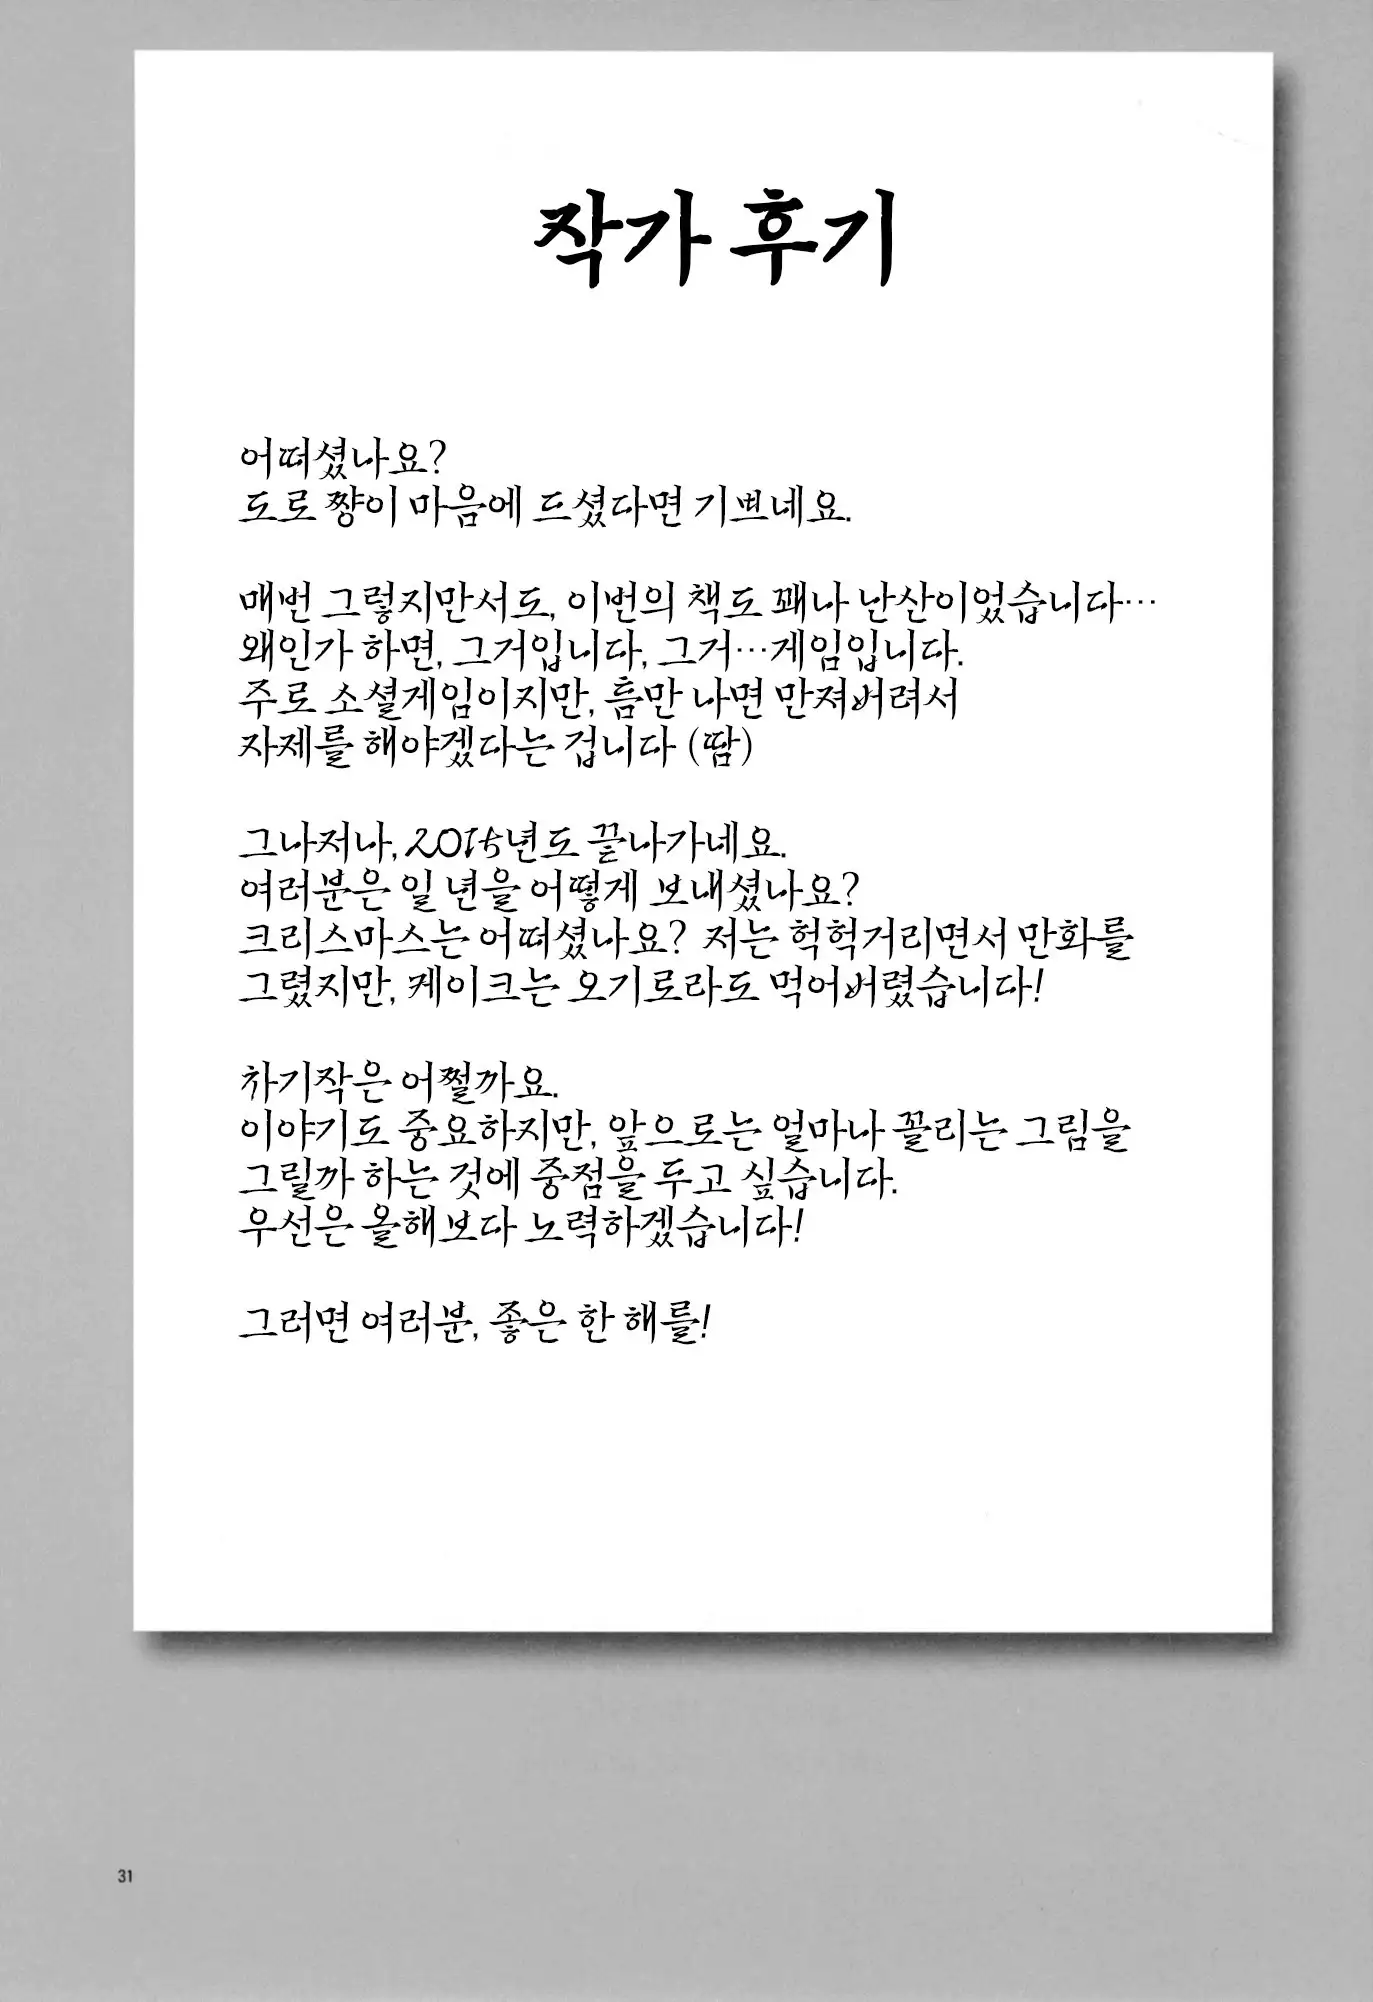 작가 후기
어떠셨나요?
도로 쨩이 마음에 드셨다면 기쁘네요.
매번 그렇지만서도, 이번의 책도 꽤나 난산이었습니다…
왜인가 하면, 그거입니다, 그거…게임입니다.
주로 소셜게임이지만, 틈만 나면 만져버려서
자제를 해야겠다는 겁니다 (땀)
그나저나, 2015년도 끝나가네요.
여러분은 일 년을 어떻게 보내셨나요?
크리스마스는 어떠셨나요? 저는 헉헉거리면서 만화를
그렸지만, 케이크는 오기로라도 먹어버렸습니다!
차기작은 어쩔까요.
이야기도 중요하지만, 앞으로는 얼마나 꼴리는 그림을
그릴까 하는 것에 중점을 두고 싶습니다.
우선은 올해보다 노력하겠습니다!
그러면 여러분, 좋은 한 해를!
31